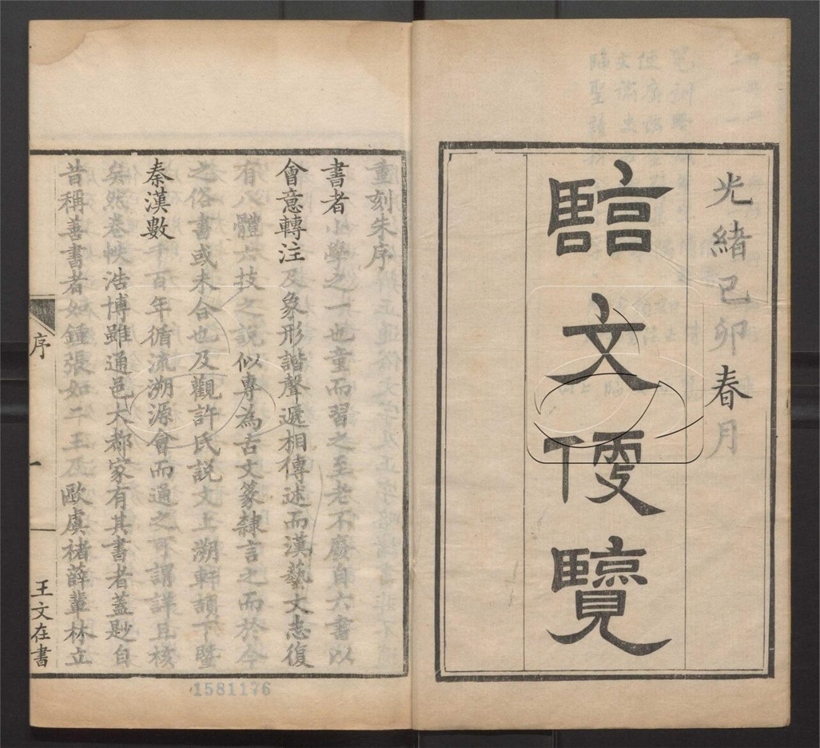 光緒己卯春月
臨文便覽
重刻朱序
書者小學之一也童而習之至老不廢自六書以
會意轉注及象形諧聲遞相傳述而漢藝文志復
有八體六技之說似專為古文篆隸言之而於今
之俗書或未合也及觀許氏說文上溯軒頡下暨
秦漢數千百年循流溯源會而通之可謂詳且核
矣然卷帙浩博雖通邑大都家有其書者蓋尟自
昔稱善書者如鍾張如二王及歐虞褚薛輩林立
序 一 王文在書
1581176